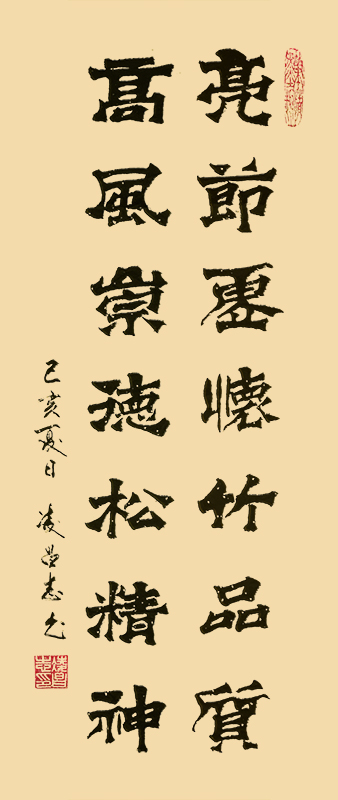 亮節虛懷竹品質
高風崇德松精神
己亥夏日 凌昌志书